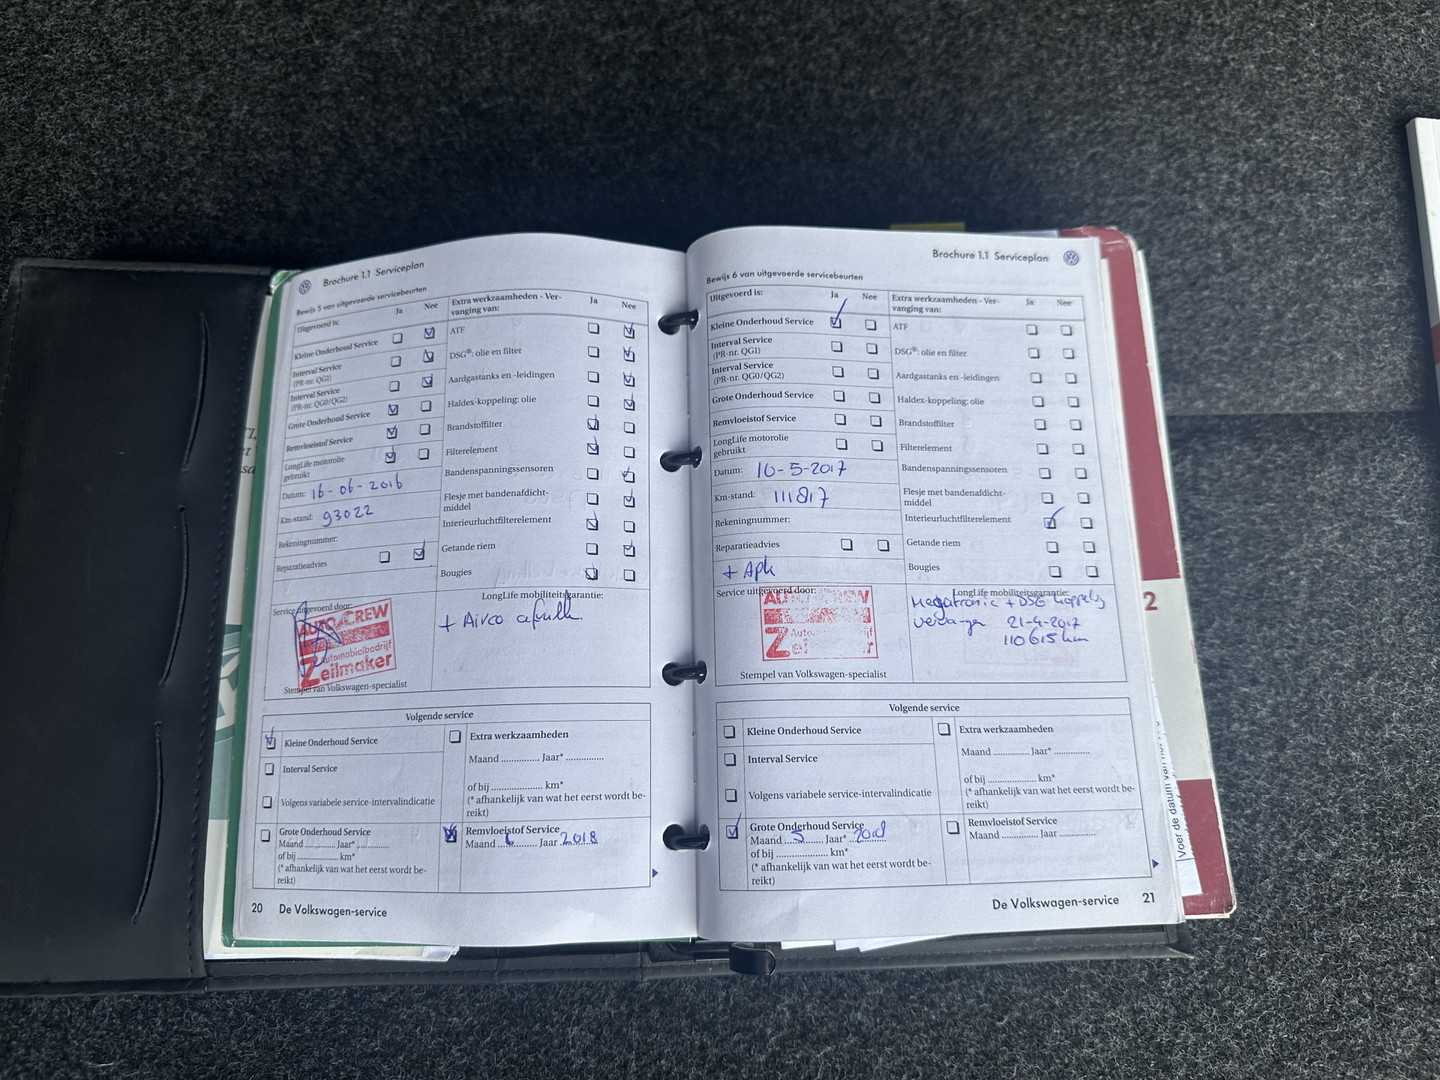 Brochure 1.1 Serviceplan
Bewijs 5 van uitgevoerde servicebeurten
Uitgevoerd is:
Ja
Nee
Kleine Onderhoud Service
Interval Service
(PR-nr. QG1)
Interval Service
(PR-nr. QG0/QG2)
Grote Onderhoud Service
Remvloeistof Service
LongLife motorolie
gebruikt
Datum: 16-06-2016
Km-stand: 93022
Rekeningnummer:
Reparatieadvies
Extra werkzaamheden - Ver-
vanging van:
Ja
Nee
ATF
DSG®: olie en filter
Aardgastanks en -leidingen
Haldex-koppeling: olie
Brandstoffilter
Filterelement
Bandenspanningssensoren
Flesje met bandenafdicht-
middel
Interieurluchtfilterelement
Getande riem
Bougies
Service uitgevoerd door:
AUTO CREW
Automobielbedrijf
Zeilmaker
Stempel van Volkswagen-specialist
LongLife mobiliteitsgarantie:
+ Airco
Volgende service
Kleine Onderhoud Service
Interval Service
Volgens variabele service-intervalindicatie
Grote Onderhoud Service
Maand ............ Jaar* ............
of bij ............ km*
(* afhankelijk van wat het eerst wordt be-
reikt)
Extra werkzaamheden
Maand ............ Jaar* ............
of bij ............ km*
(* afhankelijk van wat het eerst wordt be-
reikt)
Remvloeistof Service
Maand 6 Jaar 2018
20 De Volkswagen-service
Brochure 1.1 Serviceplan
Bewijs 6 van uitgevoerde servicebeurten
Uitgevoerd is:
Ja
Nee
Kleine Onderhoud Service
Interval Service
(PR-nr. QG1)
Interval Service
(PR-nr. QG0/QG2)
Grote Onderhoud Service
Remvloeistof Service
LongLife motorolie
gebruikt
Datum: 10-5-2017
Km-stand: 111817
Rekeningnummer:
Reparatieadvies
+ Apk
Extra werkzaamheden - Ver-
vanging van:
Ja
Nee
ATF
DSG®: olie en filter
Aardgastanks en -leidingen
Haldex-koppeling: olie
Brandstoffilter
Filterelement
Bandenspanningssensoren
Flesje met bandenafdicht-
middel
Interieurluchtfilterelement
Getande riem
Bougies
Service uitgevoerd door:
AUTO CREW
Stempel van Volkswagen-specialist
LongLife mobiliteitsgarantie:
Megatronic + DSG koppeling
vervangen 21-4-2017
110615 km
Volgende service
Kleine Onderhoud Service
Interval Service
Volgens variabele service-intervalindicatie
Grote Onderhoud Service
Maand 5 Jaar* 2018
of bij ............ km*
(* afhankelijk van wat het eerst wordt be-
reikt)
Extra werkzaamheden
Maand ............ Jaar* ............
of bij ............ km*
(* afhankelijk van wat het eerst wordt be-
reikt)
Remvloeistof Service
Maand ............ Jaar ............
De Volkswagen-service 21
2
Voer de datum van